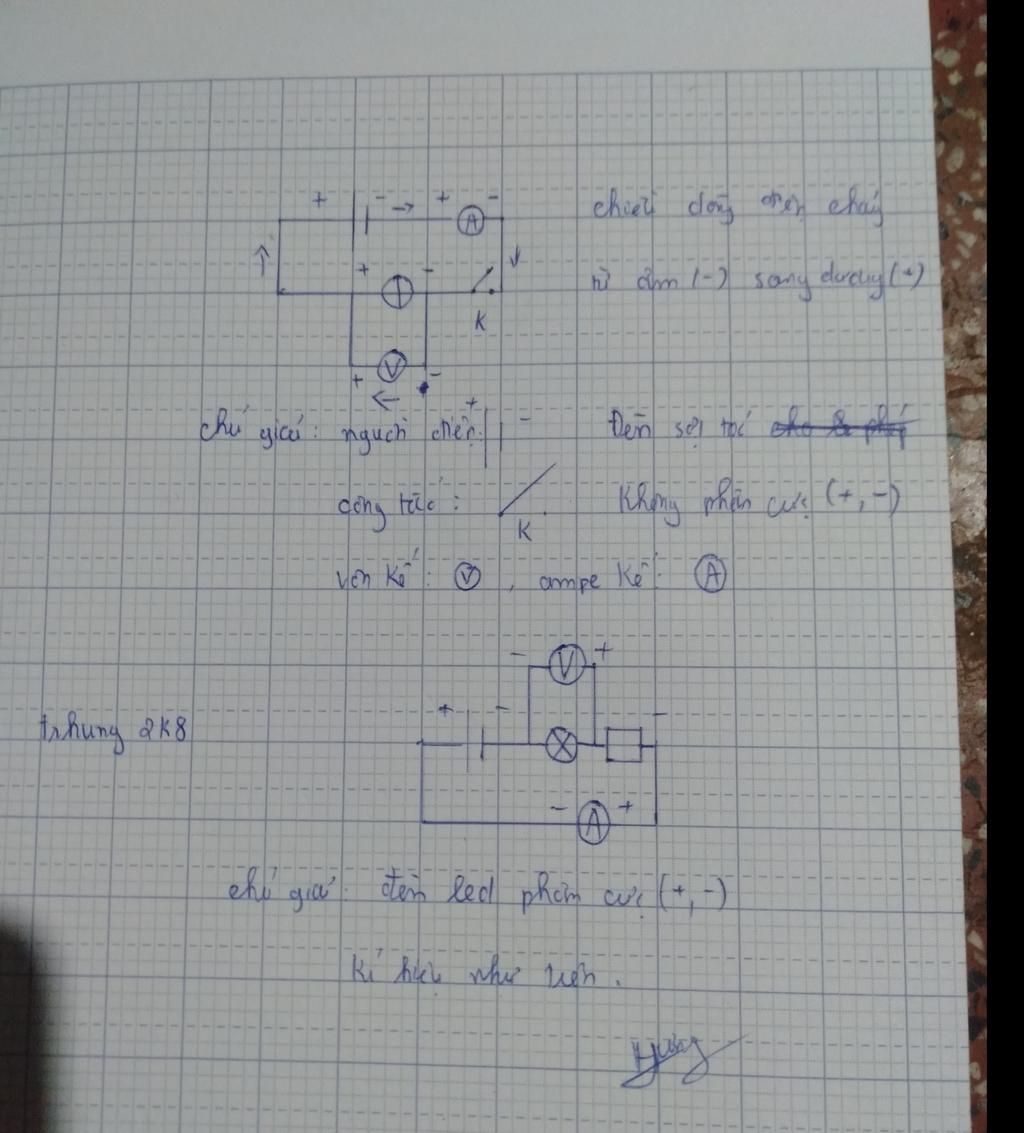 + - → + A -
chiều dòng điện chạy
↑ + - ↓
từ âm (-) sang dương (+)
K
+ V -
←
chú giải: nguồn điện: + -
Đèn sợi tóc
công tắc: K
Không phân cực (+, -)
Vôn kế: V, ampe kế: A
- V +
+ - -
trhung 2K8
- A +
chú giải: đèn led phân cực (+, -)
kí hiệu như trên.